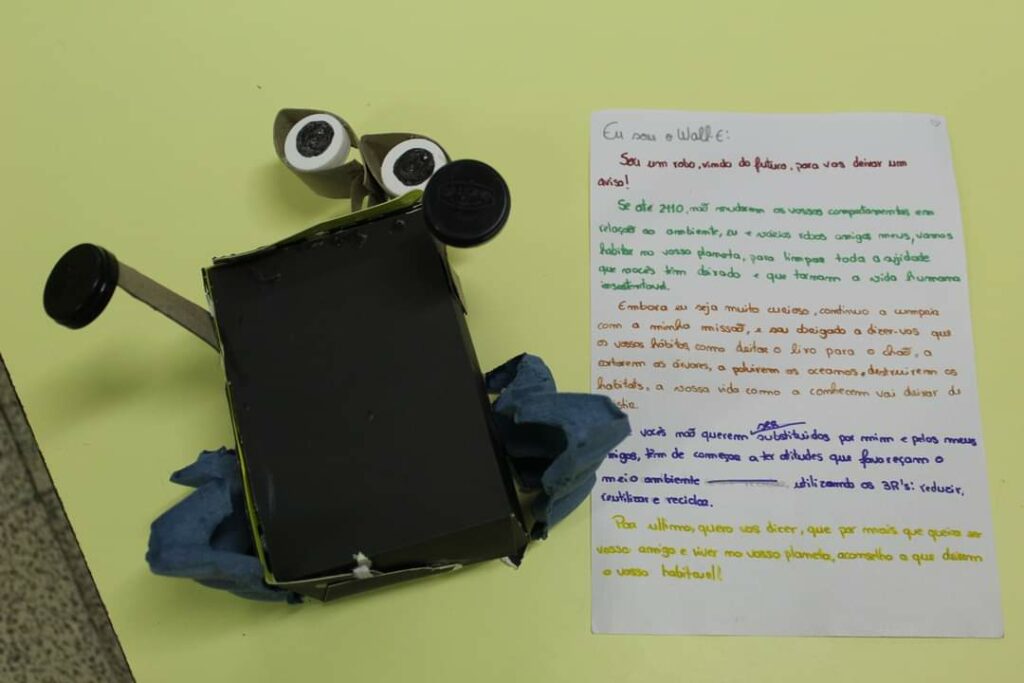 Eu sou o Wall-E:
Sou um robo, vindo do futuro, para vos deixar um
aviso!
Se até 2110, não mudarem os vossos comportamentos em
relação ao ambiente, eu e vários robos amigos meus, vamos
habitar no vosso planeta, para limpar toda a sujidade
que vocês têm deixado e que tornam a vida humana
insustentável.
Embora eu seja muito curioso, continuo a cumprir
com a minha missão, e sou obrigado a dizer-vos que
os vossos hábitos, como deitar o lixo para o chão, a
cortarem as árvores, a poluirem os oceanos, destruirem os
habitats, a vossa vida como a conhecem vai deixar de
vocês não querem ser substituidos por mim e pelos meus
migos, têm de começar a ter atitudes que favoreçam o
meio ambiente utilizando os 3R's: reduzir,
reutilizar e reciclar.
Por ultimo, quero vos dizer, que por mais que queira ser
vosso amigo e viver no vosso planeta, aconselho a que deixem
o vosso habitavel!